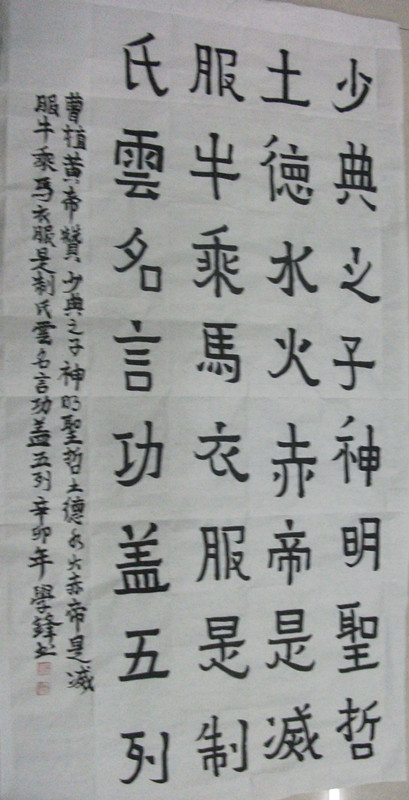 少典之子神明聖哲
土德水火赤帝是滅
服牛乘馬衣服是制
氏雲名言功盖五列
曹植黄帝贊少典之子神明聖哲土德水火赤帝是滅
服牛乘馬衣服是制氏雲名言功盖五列辛卯年學鋒书